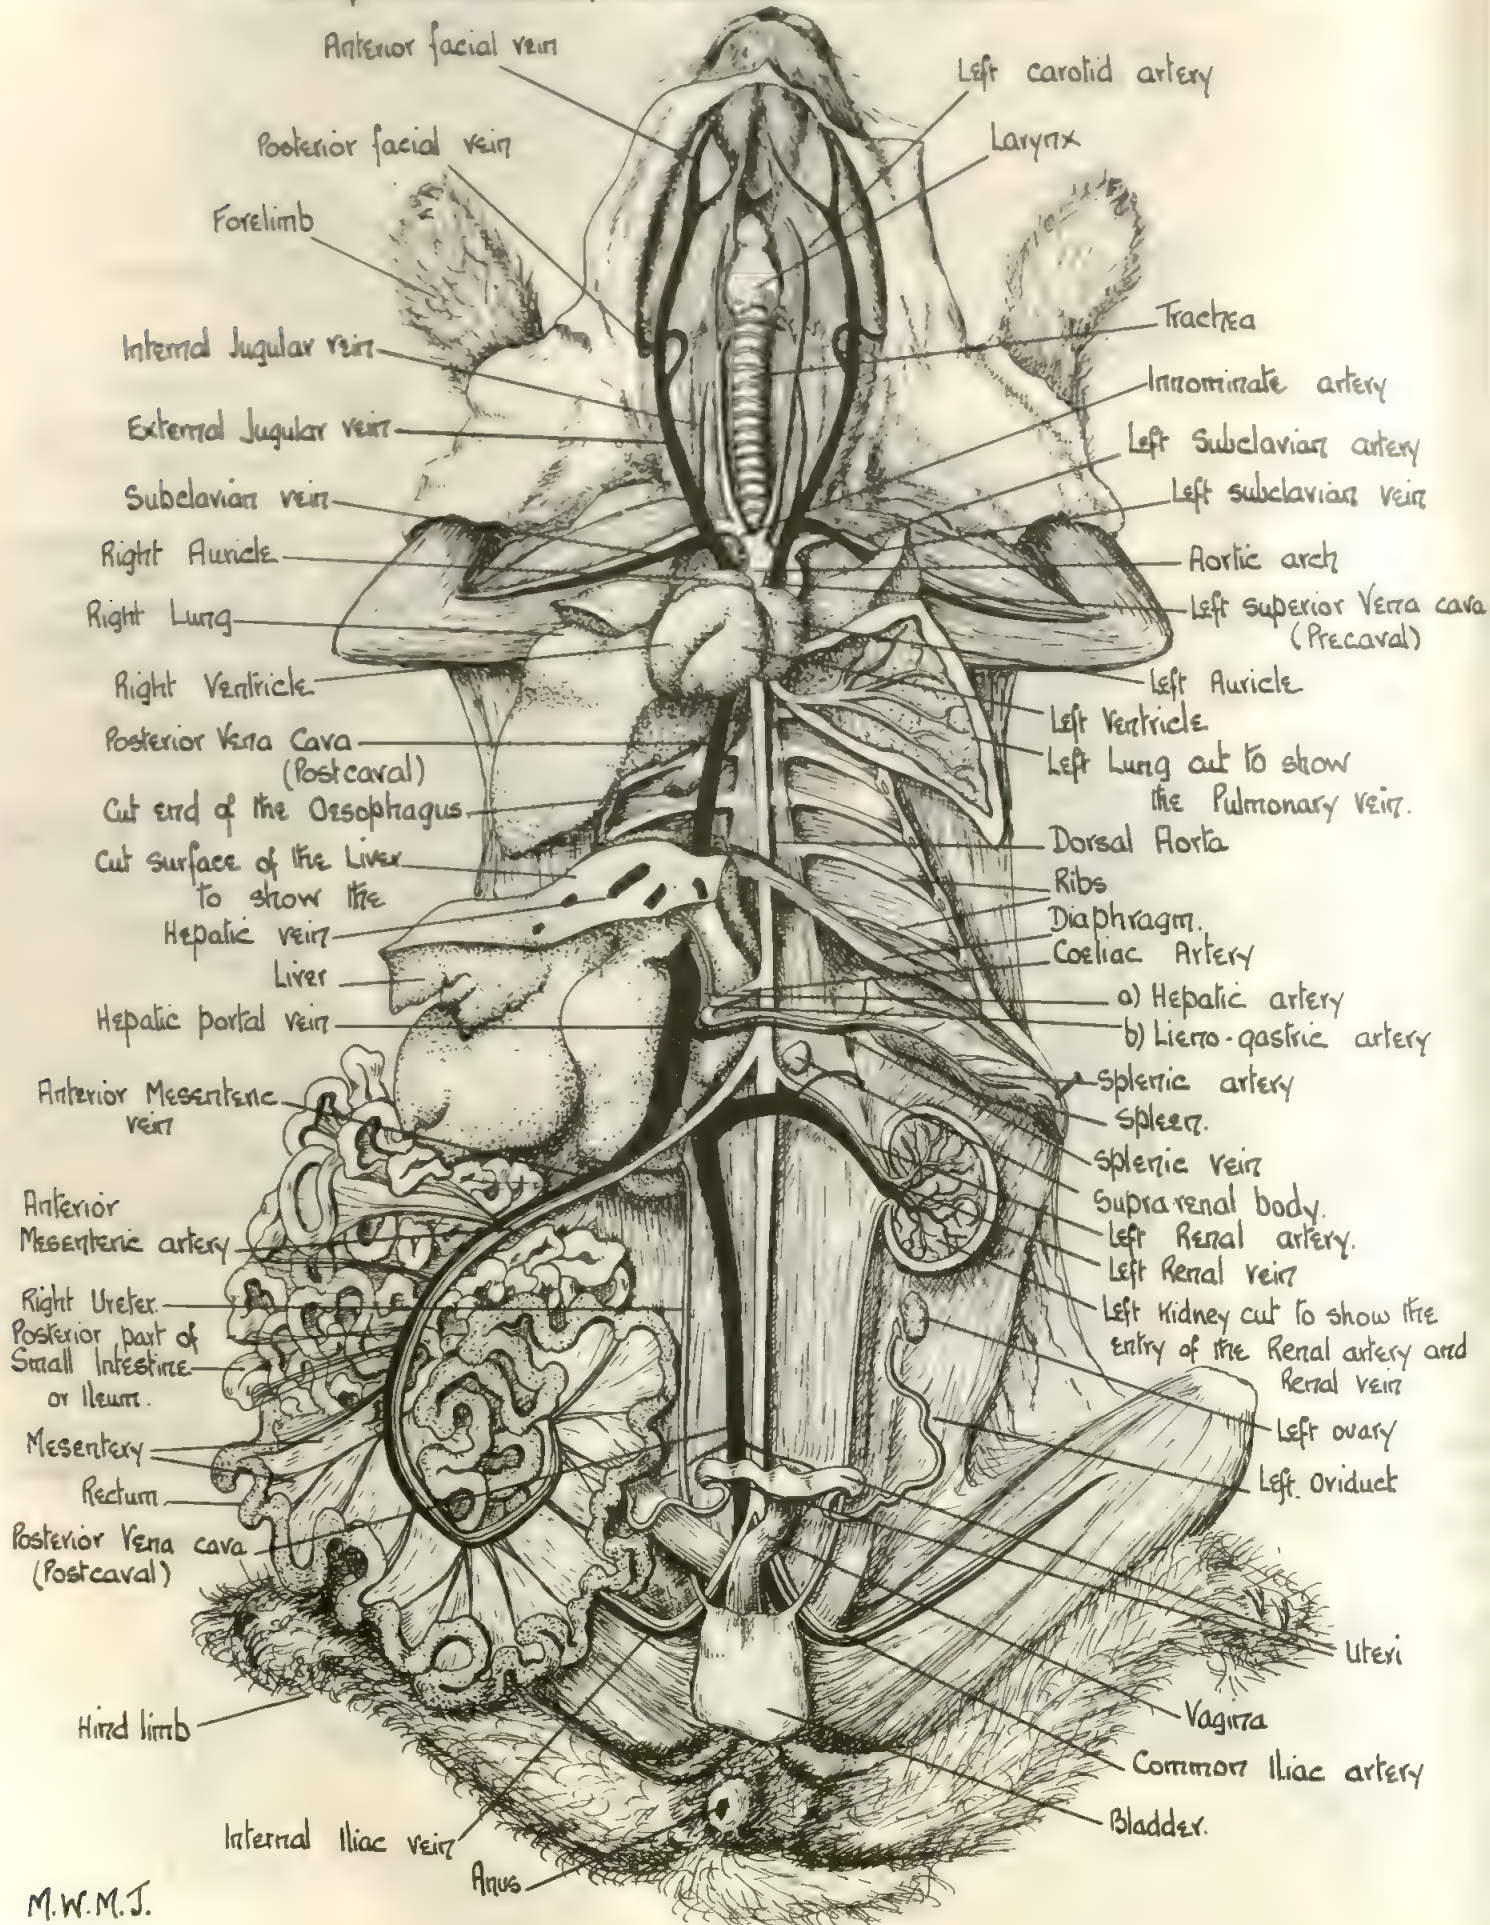 Anterior facial vein
Posterior facial vein
Forelimb
Internal Jugular vein
External Jugular vein
Subclavian vein
Right Auricle
Right Lung
Right Ventricle
Posterior Vena Cava
(Postcaval)
Cut end of the Oesophagus
Cut surface of the Liver
to show the
Hepatic vein
Liver
Hepatic portal vein
Anterior Mesenteric
vein
Anterior
Mesenteric artery
Right Ureter
Posterior part of
Small Intestine
or Ileum.
Mesentery
Rectum
Posterior Vena cava
(Postcaval)
Hind limb
Internal Iliac vein
Anus
M.W.M.J.
Left carotid artery
Larynx
Trachea
Innominate artery
Left Subclavian artery
Left subclavian vein
Aortic arch
Left superior Vena cava
(Precaval)
Left Auricle
Left Ventricle
Left Lung cut to show
the Pulmonary vein.
Dorsal Aorta
Ribs
Diaphragm.
Coeliac Artery
a) Hepatic artery
b) Lieno-gastric artery
Splenic artery
Spleen.
Splenic vein
Supra renal body.
Left Renal artery.
Left Renal vein
Left Kidney cut to show the
entry of the Renal artery and
Renal vein
Left ovary
Left. Oviduct
Uteri
Vagina
Common Iliac artery
Bladder.